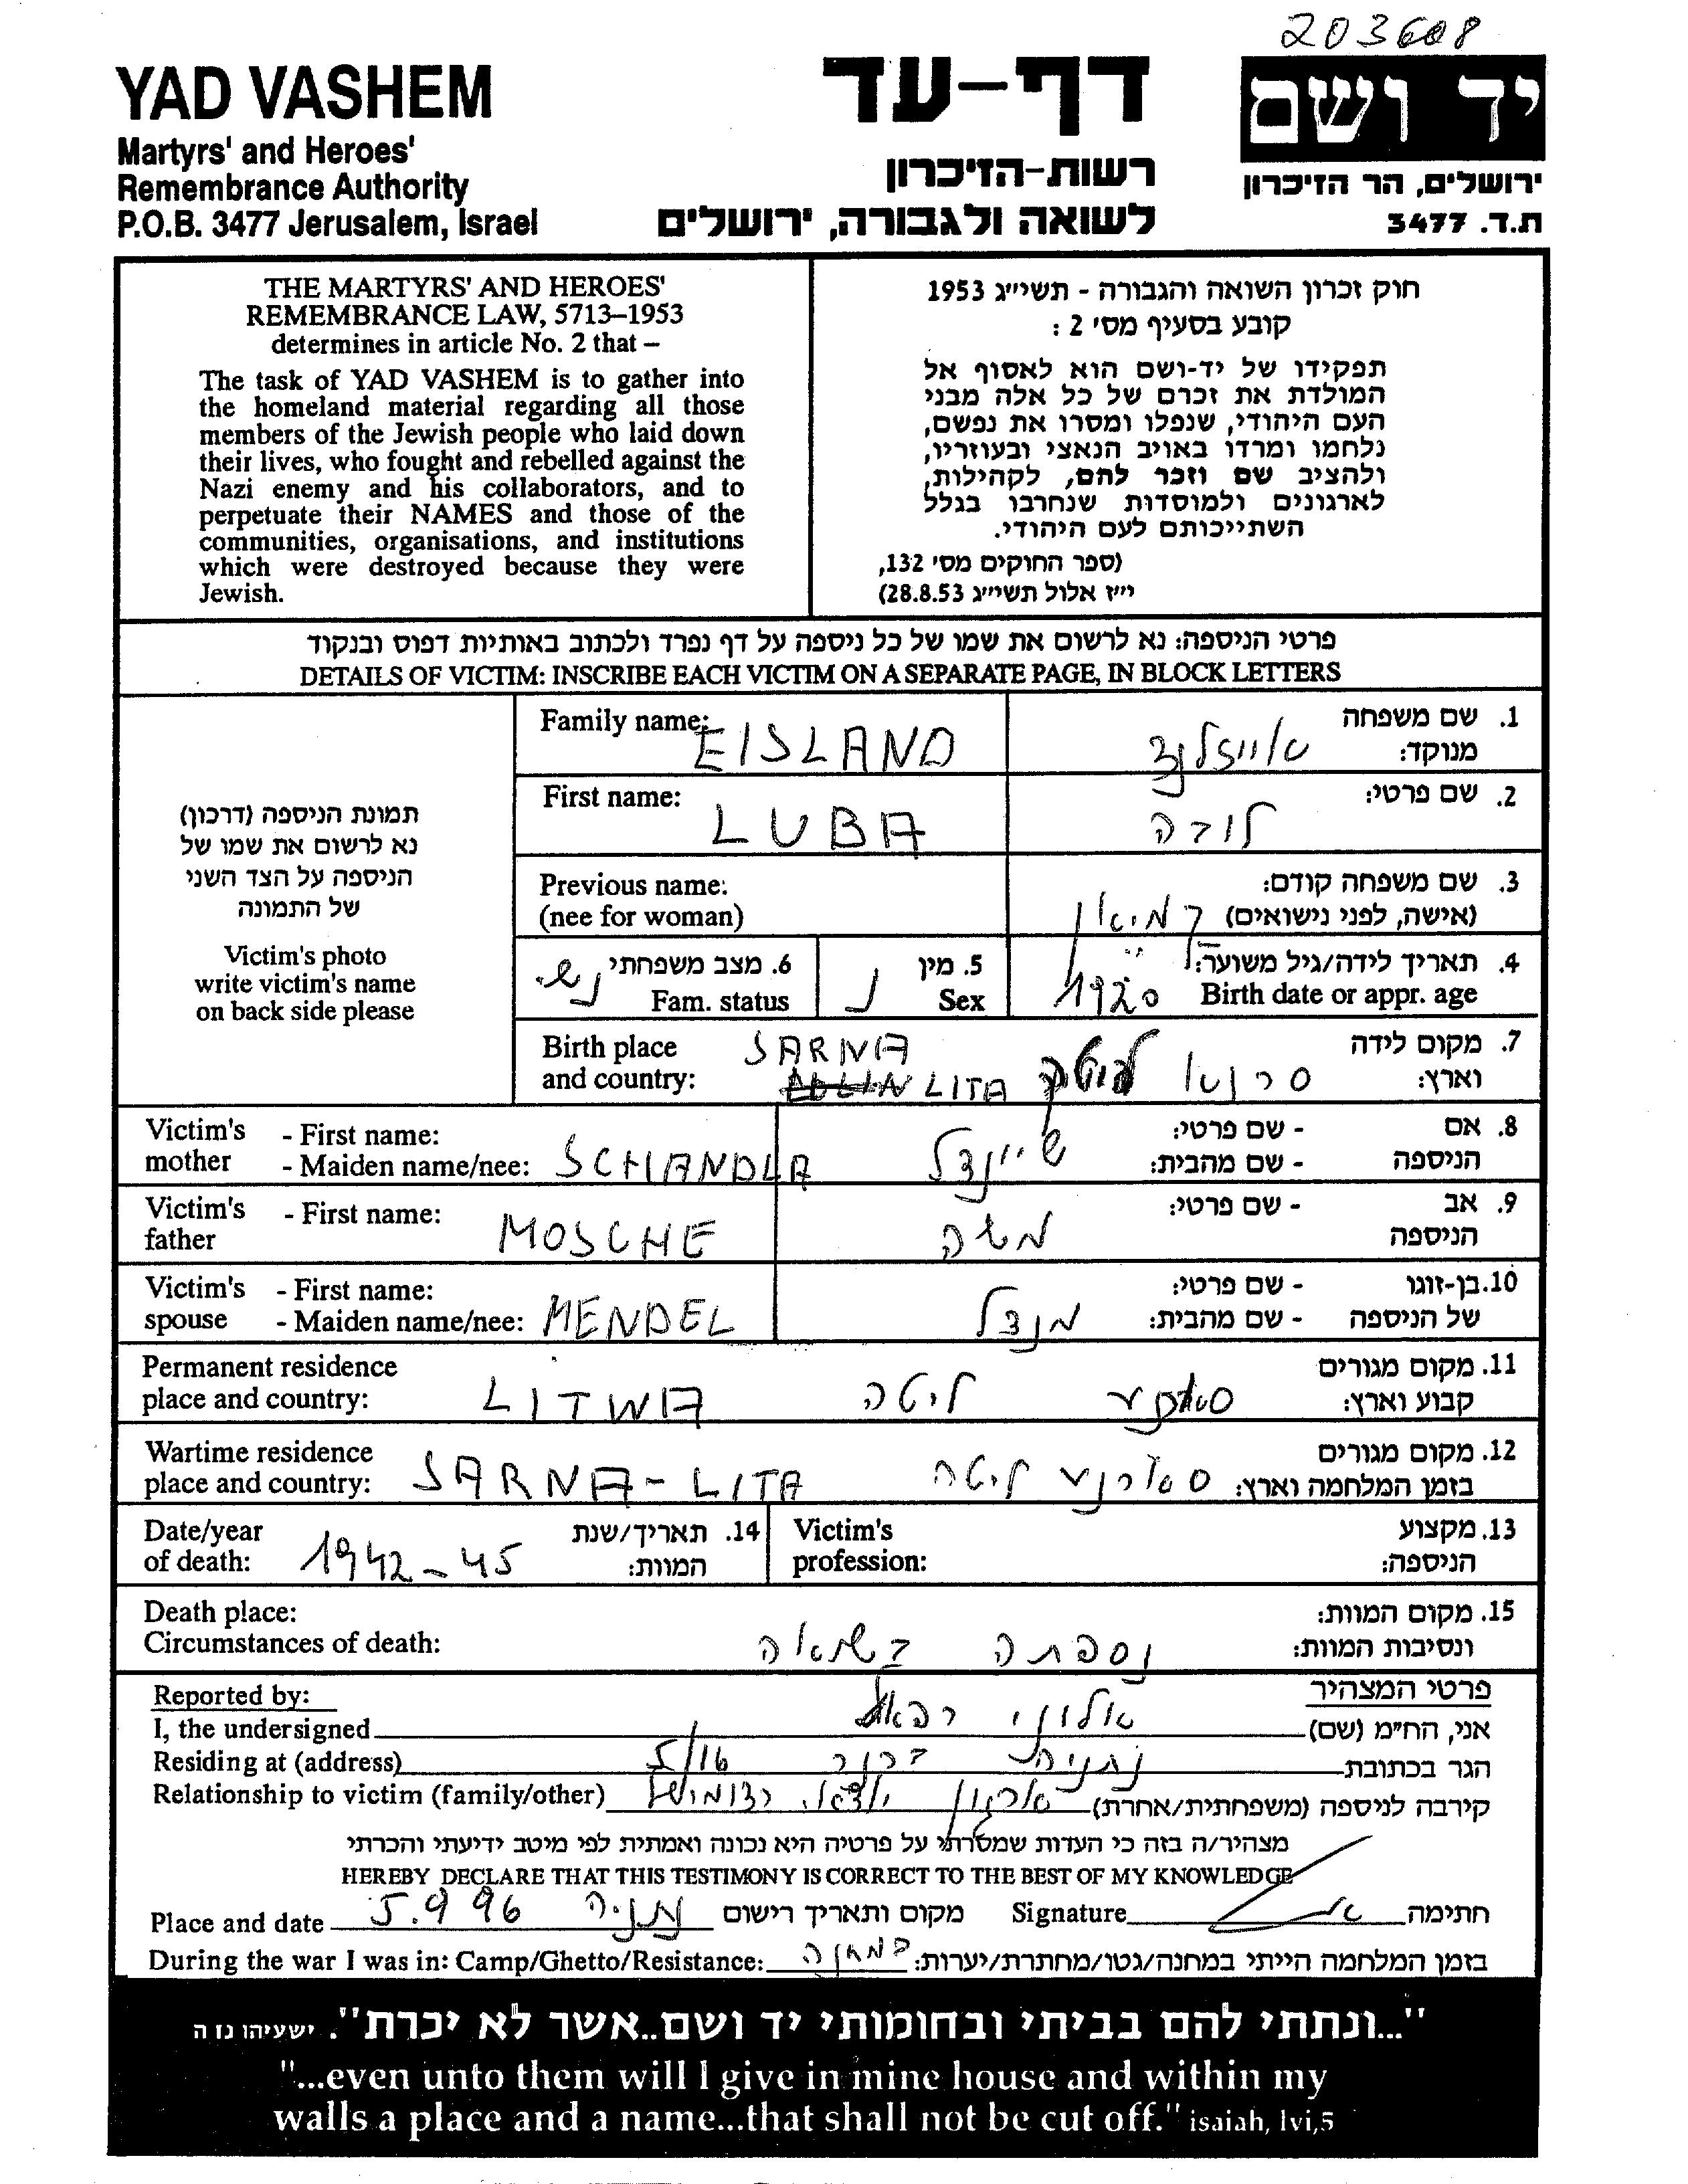 203608
YAD VASHEM
Martyrs' and Heroes'
Remembrance Authority
P.O.B. 3477 Jerusalem, Israel
דף-עד
רשות-הזיכרון
לשואה ולגבורה, ירושלים
יד ושם
ירושלים, הר הזיכרון
ת.ד. 3477
THE MARTYRS' AND HEROES'
REMEMBRANCE LAW, 5713–1953
determines in article No. 2 that –
The task of YAD VASHEM is to gather into
the homeland material regarding all those
members of the Jewish people who laid down
their lives, who fought and rebelled against the
Nazi enemy and his collaborators, and to
perpetuate their NAMES and those of the
communities, organisations, and institutions
which were destroyed because they were
Jewish.
חוק זכרון השואה והגבורה - תשי״ג 1953
קובע בסעיף מס׳ 2 :
תפקידו של יד-ושם הוא לאסוף אל
המולדת את זכרם של כל אלה מבני
העם היהודי, שנפלו ומסרו את נפשם,
נלחמו ומרדו באויב הנאצי ובעוזריו,
ולהציב שם וזכר להם, לקהילות,
לארגונים ולמוסדות שנחרבו בגלל
השתייכותם לעם היהודי.
(ספר החוקים מס׳ 132,
י״ז אלול תשי״ג 28.8.53)
פרטי הניספה: נא לרשום את שמו של כל ניספה על דף נפרד ולכתוב באותיות דפוס ובנקוד
DETAILS OF VICTIM: INSCRIBE EACH VICTIM ON A SEPARATE PAGE, IN BLOCK LETTERS
תמונת הניספה (דרכון)
נא לרשום את שמו של
הניספה על הצד השני
של התמונה
Victim's photo
write victim's name
on back side please
Family name: EISLAND אייזלנד 1. שם משפחה
מנוקד:
First name: LUBA לובה 2. שם פרטי:
Previous name: 3. שם משפחה קודם:
(nee for woman) (אישה, לפני נישואים)
6. מצב משפחתי נש. 5. מין נ 4. תאריך לידה/גיל משוער:
Fam. status Sex 1920 Birth date or appr. age
Birth place SARNA 7. מקום לידה
and country: LITA סרנא ליטה וארץ:
Victim's - First name: - שם פרטי: 8. אם
mother - Maiden name/nee: SCHANDLA שיינדל - שם מהבית: הניספה
Victim's - First name: MOSCHE משה - שם פרטי: 9. אב
father הניספה
Victim's - First name: - שם פרטי: 10. בן-זוגו
spouse - Maiden name/nee: MENDEL מנדל - שם מהבית: של הניספה
Permanent residence 11. מקום מגורים
place and country: LITWA ליטה קבוע וארץ:
Wartime residence 12. מקום מגורים
place and country: SARNA - LITA סארנע ליטה בזמן המלחמה וארץ:
Date/year 14. תאריך/שנת Victim's 13. מקצוע
of death: 1942 - 45 המוות: profession: הניספה:
Death place: 15. מקום המוות:
Circumstances of death: נספתה בשואה ונסיבות המוות:
Reported by: פרטי המצהיר
I, the undersigned אלוני רפאל אני, החי״מ (שם)
Residing at (address) נתניה דרור 5/16 הגר בכתובת
Relationship to victim (family/other) ארגון יוצאי קירבה לניספה (משפחתית/אחרת)
מצהיר/ה בזה כי העדות שמסרתי על פרטיה היא נכונה ואמתית לפי מיטב ידיעתי והכרתי
HEREBY DECLARE THAT THIS TESTIMONY IS CORRECT TO THE BEST OF MY KNOWLEDGE
Place and date 5.9 96 נתניה מקום ותאריך רישום Signature חתימה
During the war I was in: Camp/Ghetto/Resistance: במחנה בזמן המלחמה הייתי במחנה/גטו/מחתרת/יערות:
"...ונתתי להם בביתי ובחומותי יד ושם..אשר לא יכרת". ישעיהו נז ה
"...even unto them will I give in mine house and within my
walls a place and a name...that shall not be cut off." isaiah, lvi,5